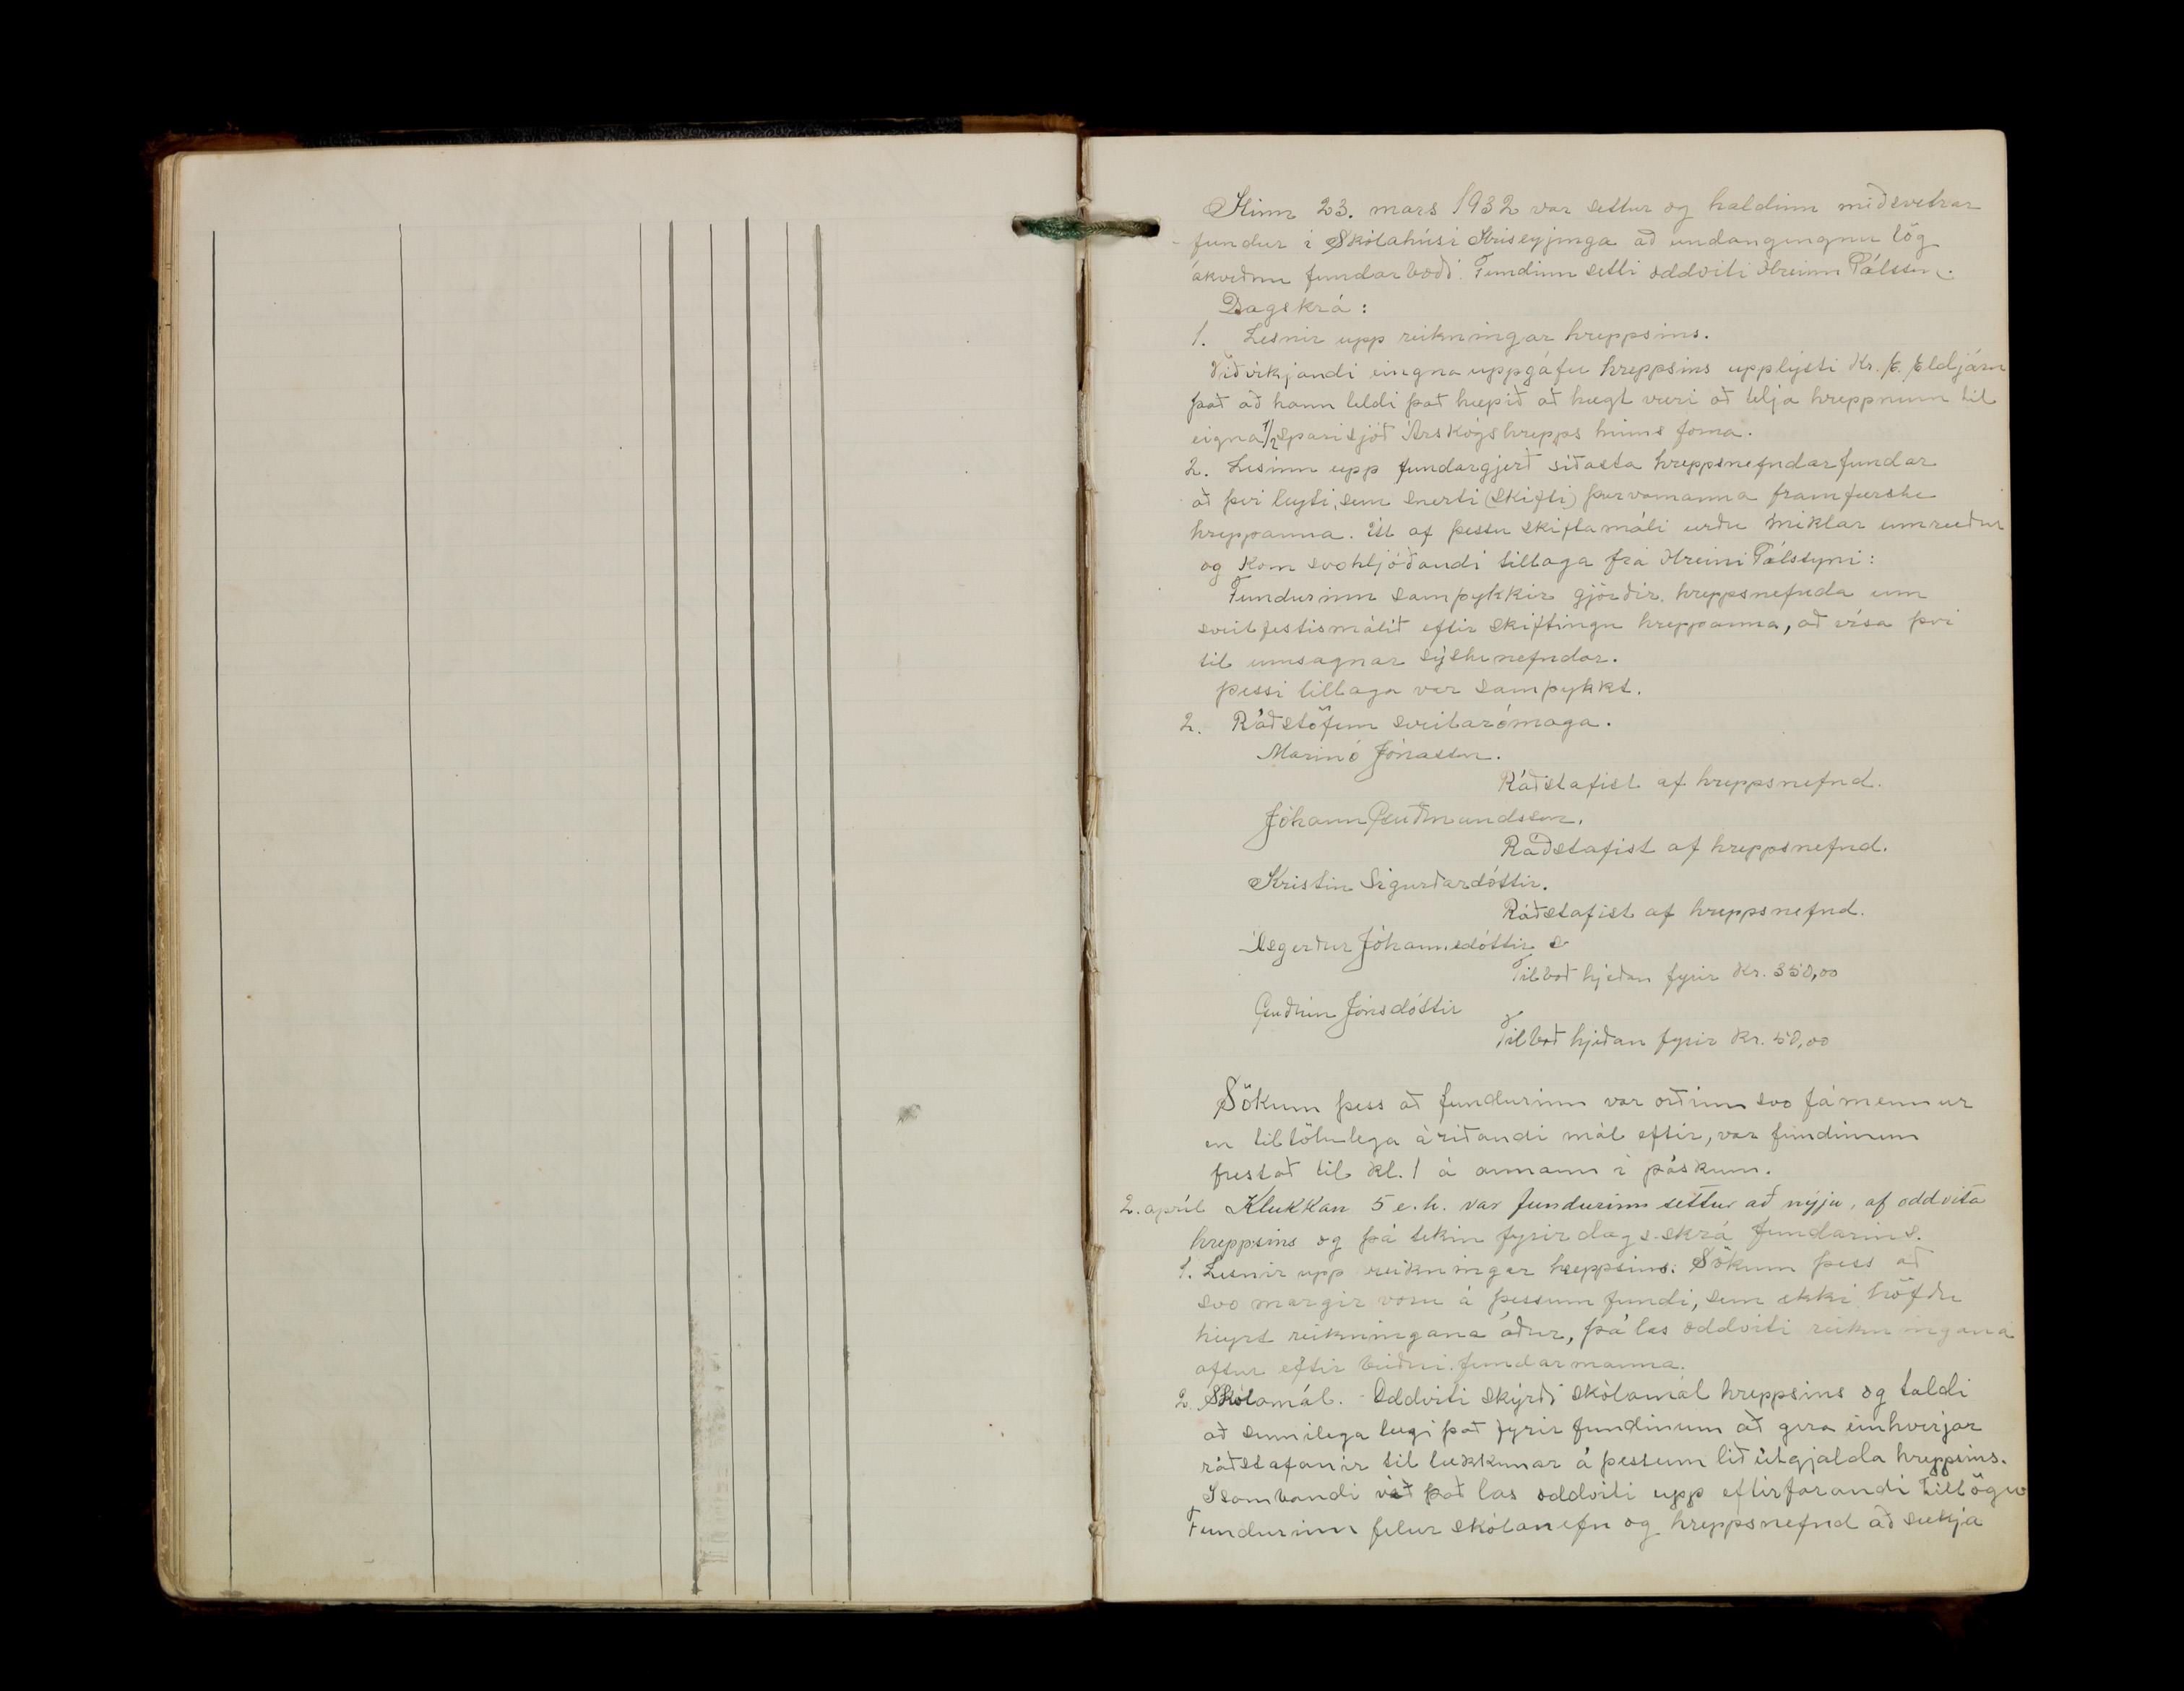 Hinn 23. mars 1932 var settur og haldinn miðsvetrar
fundur í Skólahúsi Hríseyjinga að undangengnu lög
ákveðnu fundarboði. Fundinn setti oddviti Hreinn Pálsson.
Dagskrá:
1. Lesnir upp reikningar hreppsins.
Viðvíkjandi eingna uppgáfu hreppsins upplýsti Kr. E. Eldjárn
það að hann teldi það hæpið að hægt væri að telja hreppnum til
eigna 1/2 sparisjóð Árskógshrepps hinns forna.
2. Lesinn upp fundargjerð síðasta hreppsnefndarfundar
að því leyti, sem snerti (skifti) þurvamanna framfærslu
hreppanna. Út af þessu skiftamáli urðu miklar umræður
og kom svohljóðandi tillaga frá Hreini Pálssyni:
Fundurinn samþykkir gjörðir hreppsnefnda um
sveitfestismálið eftir skiftingu hreppanna, að vísa því
til umsagnar sýslunefndar.
þessi tillaga var samþykkt.
2. Ráðstöfun sveitarómaga.
Marinó Jónasson.
Ráðstafist af hreppsnefnd.
Jóhann Guðmundsson.
Ráðstafist af hreppsnefnd.
Kristín Sigurðardóttir.
Ráðstafist af hreppsnefnd.
Ásgerður Jóhannsdóttir
Tilboð hjeðan fyrir Kr. 350,00
Guðrún Jónsdóttir
Tilboð hjeðan fyrir Kr. 50,00
Sökum þess að fundurinn var orðinn svo fámennur
en tiltölulega áríðandi mál eftir, var fundinum
frestað til kl. 1 á annann í páskum.
2. apríl Klukkan 5 e.h. var fundurinn settur að nýju, af oddvita
hreppsins og þá tekin fyrir dagsskrá fundarins.
1. Lesnir upp reikningar hreppsins. Sökum þess að
svo margir voru á þessum fundi, sem ekki höfðu
heyrt reikningana áður, þá las oddviti reikningana
aftur eftir beiðni fundarmanna.
2. Skólamál. Oddviti skýrði skólamál hreppsins og taldi
að sennilega lægi það fyrir fundinum að gera einhverjar
ráðstafanir til lækkunar á þessum lið útgjalda hreppsins.
Í sambandi við það las oddviti upp eftirfarandi tillögu
Fundurinn felur skólanefn og hreppsnefnd að sækja